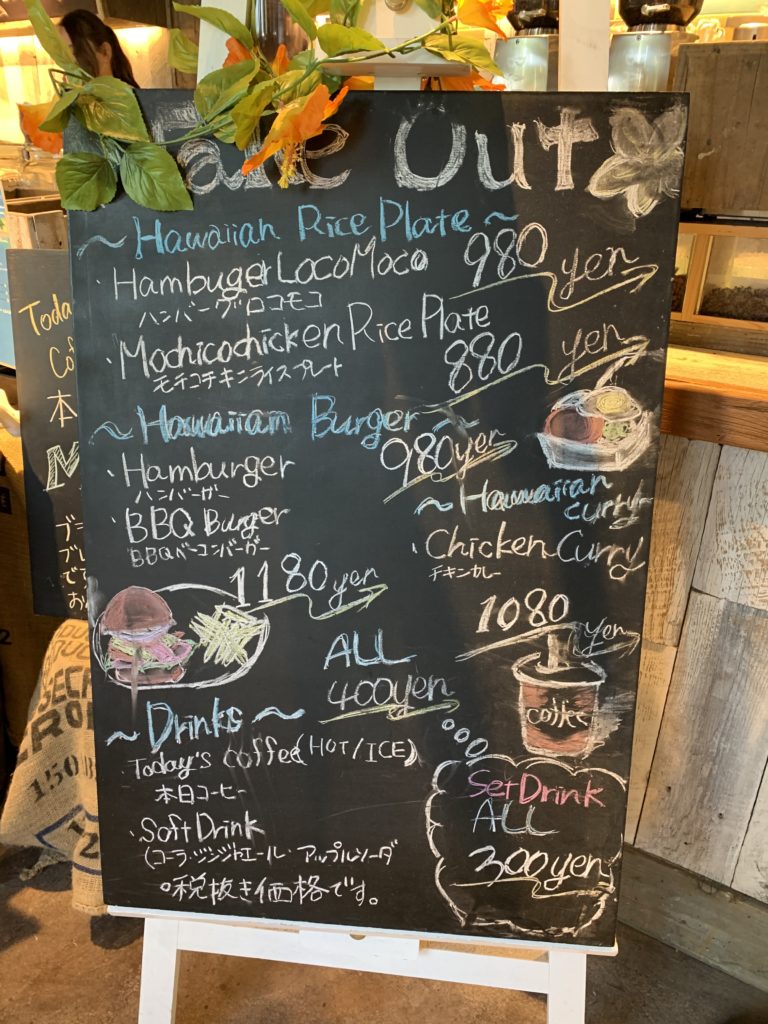 Take Out
~ Hawaiian Rice Plate ~
・Hambuger LocoMoco 980 yen
ハンバーグロコモコ
・Mochicochicken Rice Plate
880 yen
モチコチキンライスプレート
~ Hawaiian Burger ~
・Hamburger 980yen
ハンバーガー
・BBQ Burger
BBQベーコンバーガー
1180yen
~ Hawaiian
curry~
・Chicken Curry
チキンカレー
1080
yen
coffee
ALL
400yen
~ Drinks ~
Today's coffee (HOT/ICE)
本日コーヒー
・Soft Drink
(コーラ・ジンジャエール・アップルソーダ
○税抜き価格です。
Set Drink
ALL
300yen
Toda
Co
本
M
150